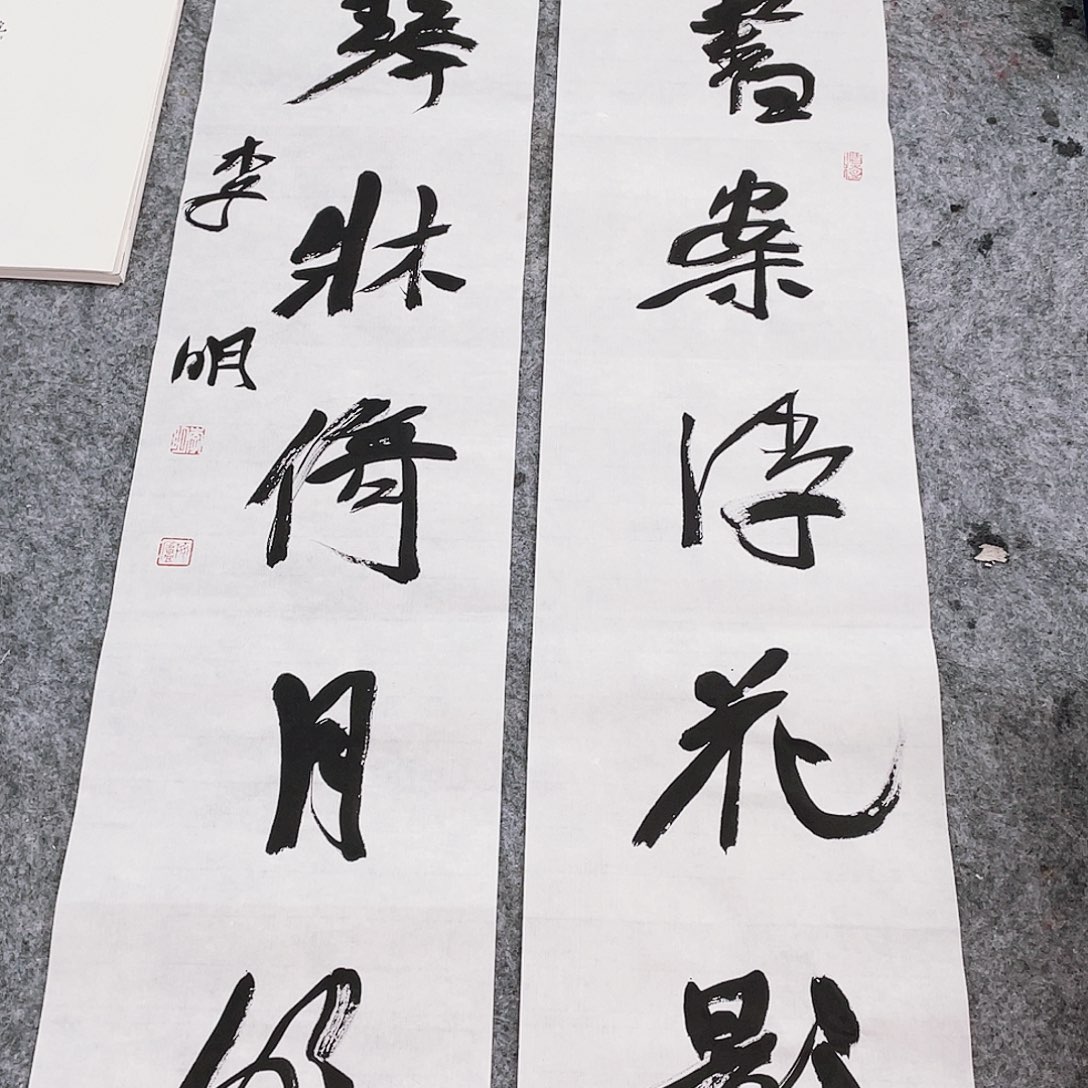 書案浮花影
琴牀倚月
李明